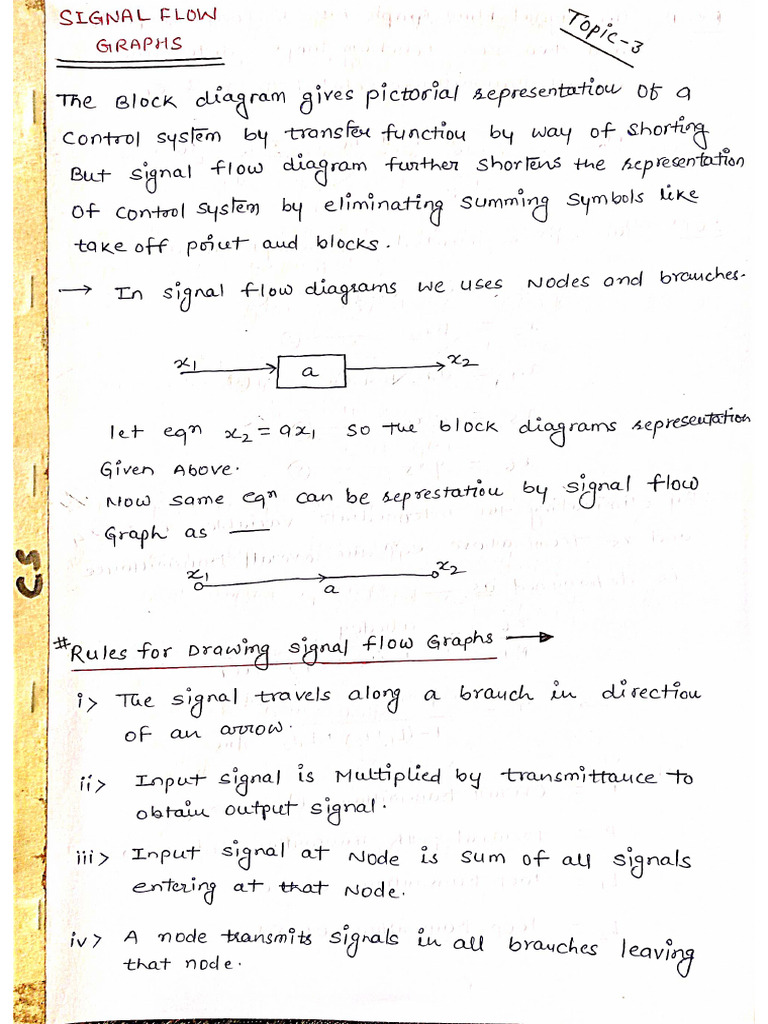 SIGNAL FLOW
GRAPHS
Topic-3
The Block diagram gives pictorial representation of a
control system by transfer function by way of shorting
But signal flow diagram further shortens the representation
of control system by eliminating summing symbols like
take off point and blocks.
→ In signal flow diagrams we uses Nodes and branches.
x1 a x2
let eqn x2 = ax1 so the block diagrams representation
Given Above.
Now same eqn can be seprestatiou by signal flow
Graph as —
x1 a x2
# Rules for Drawing signal flow Graphs →
i> The signal travels along a branch in direction
of an arrow.
ii> Input signal is Multiplied by transmittance to
obtain output signal.
iii> Input signal at Node is sum of all signals
entering at that Node.
iv> A node transmits signals in all branches leaving
that node.
CS